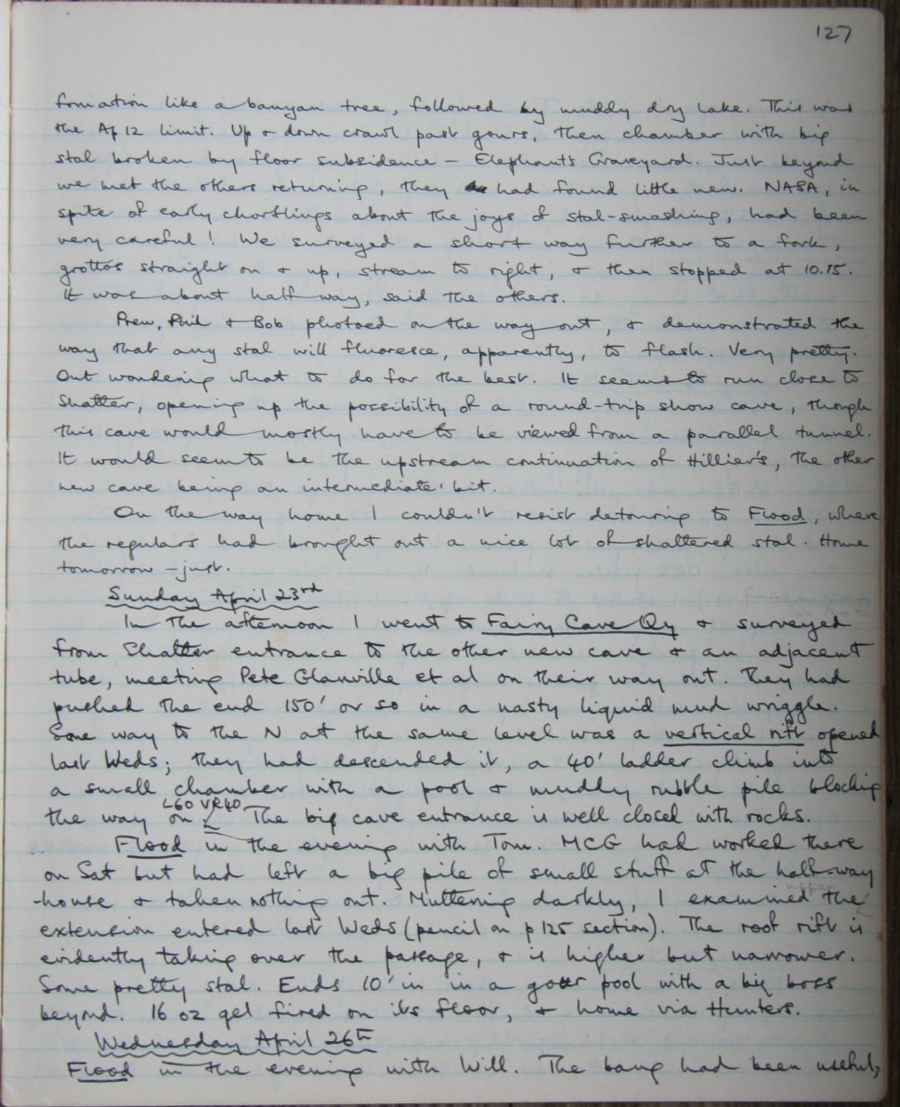 127
formation like a banyan tree, followed by muddy dry lake. This was
the Ap 12 limit. Up & down crawl past gours, then chamber with big
stal broken by floor subsidence – Elephants Graveyard. Just beyond
we met the others returning, they had found little new. NASA, in
spite of early chortlings about the joys of stal-smashing, had been
very careful! We surveyed a short way further to a fork,
grottos straight on & up, stream to right, & then stopped at 10.15.
It was about half way, said the others.
Prew, Phil & Bob photoed on the way out, & demonstrated the
way that any stal will fluoresce, apparently, to flash. Very pretty.
Out wondering what to do for the best. It seems to run close to
Shatter, opening up the possibility of a round-trip show cave, though
this cave would mostly have to be viewed from a parallel tunnel.
It would seem to be the upstream continuation of Hillier's, the other
new cave being an intermediate bit.
On the way home I couldn't resist detouring to Flood, where
the regulars had brought out a nice lot of shattered stal. Home
tomorrow – just.
Sunday April 23rd
In the afternoon I went to Fairy Cave Qy & surveyed
from Shatter entrance to the other new cave & an adjacent
tube, meeting Pete Glanville et al on their way out. They had
pushed the end 150' or so in a nasty liquid mud wriggle.
Some way to the N at the same level was a vertical rift opened
last Weds; they had descended it, a 40' ladder climb into
a small chamber with a pool & muddy rubble pile blocking
L60 VR40
the way on. The big cave entrance is well closed with rocks.
Flood in the evening with Tom. MCG had worked there
on Sat but had left a big pile of small stuff at the half-way
-house & taken nothing out. Muttering darkly, I examined the
extension entered last Weds (pencil on p125 section). The roof rift is
evidently taking over the passage, & is higher but narrower.
Some pretty stal. Ends 10' in in a gour pool with a big boss
beyond. 16 oz gel fired on its floor, & home via Hunters.
Wednesday April 26th
Flood in the evening with Will. The bang had been useful,